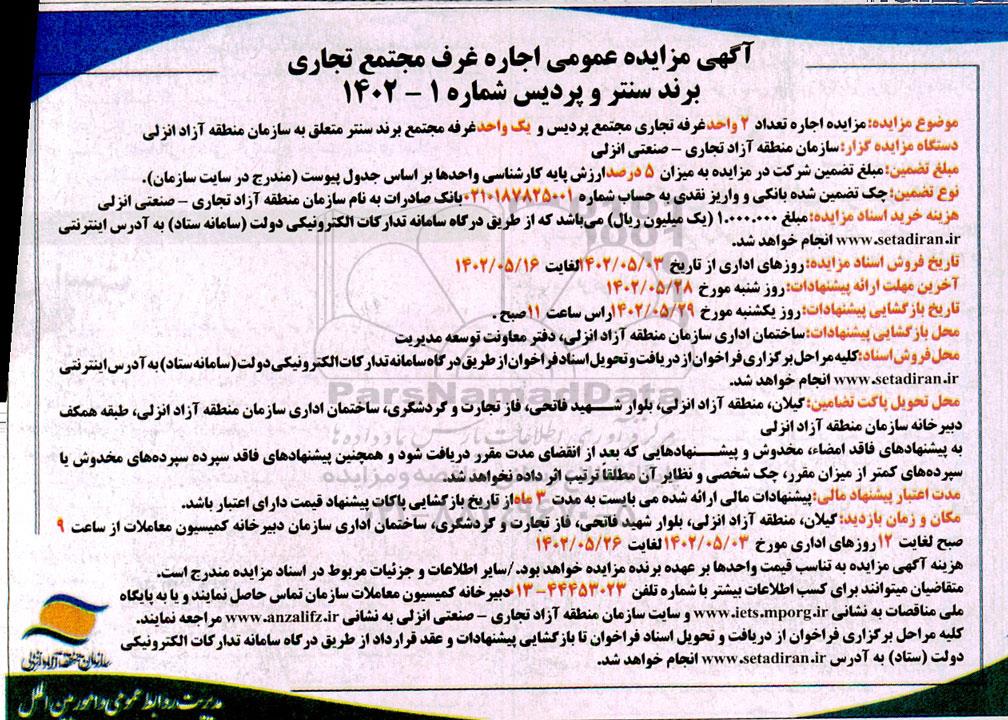 آگهی مزایده عمومی اجاره غرف مجتمع تجاری
برند سنتر و پردیس شماره ۱ - ۱۴۰۲
موضوع مزایده: مزایده اجاره تعداد ۲ واحد غرفه تجاری مجتمع پردیس و یک واحد غرفه مجتمع برند سنتر متعلق به سازمان منطقه آزاد انزلی
دستگاه مزایده گزار: سازمان منطقه آزاد تجاری - صنعتی انزلی
مبلغ تضمین: مبلغ تضمین شرکت در مزایده به میزان ۵ درصد ارزش پایه کارشناسی واحدها بر اساس جدول پیوست (مندرج در سایت سازمان).
نوع تضمین: چک تضمین شده بانکی و واریز نقدی به حساب شماره ۰۲۱۰۱۸۷۸۲۵۰۰۱ بانک صادرات به نام سازمان منطقه آزاد تجاری - صنعتی انزلی
هزینه خرید اسناد مزایده: مبلغ ۱.۰۰۰.۰۰۰ (یک میلیون ریال) می‌باشد که از طریق درگاه سامانه تدارکات الکترونیکی دولت (سامانه ستاد) به آدرس اینترنتی
www.setadiran.ir انجام خواهد شد.
تاریخ فروش اسناد مزایده: روزهای اداری از تاریخ ۱۴۰۲/۰۵/۰۳ لغایت ۱۴۰۲/۰۵/۱۶
آخرین مهلت ارائه پیشنهادات: روز شنبه مورخ ۱۴۰۲/۰۵/۲۸
تاریخ بازگشایی پیشنهادات: روز یکشنبه مورخ ۱۴۰۲/۰۵/۲۹ راس ساعت ۱۱ صبح.
محل بازگشایی پیشنهادات: ساختمان اداری سازمان منطقه آزاد انزلی، دفتر معاونت توسعه مدیریت
محل فروش اسناد: کلیه مراحل برگزاری فراخوان از دریافت و تحویل اسناد فراخوان از طریق درگاه سامانه تدارکات الکترونیکی دولت (سامانه ستاد) به آدرس اینترنتی
www.setadiran.ir انجام خواهد شد.
محل تحویل پاکت تضامین: گیلان، منطقه آزاد انزلی، بلوار شهید فاتحی، فاز تجارت و گردشگری، ساختمان اداری سازمان منطقه آزاد انزلی، طبقه همکف
دبیرخانه سازمان منطقه آزاد انزلی
به پیشنهادهای فاقد امضاء، مخدوش و پیشنهادهایی که بعد از انقضای مدت مقرر دریافت شود و همچنین پیشنهادهای فاقد سپرده سپرده‌های مخدوش یا
سپرده‌های کمتر از میزان مقرر، چک شخصی و نظایر آن مطلقا ترتیب اثر داده نخواهد شد.
مدت اعتبار پیشنهاد مالی: پیشنهادات مالی ارائه شده می بایست به مدت ۳ ماه از تاریخ بازگشایی پاکات پیشنهاد قیمت دارای اعتبار باشد.
مکان و زمان بازدید: گیلان، منطقه آزاد انزلی، بلوار شهید فاتحی، فاز تجارت و گردشگری، ساختمان اداری سازمان دبیرخانه کمیسیون معاملات از ساعت ۹
صبح لغایت ۱۲ روزهای اداری مورخ ۱۴۰۲/۰۵/۰۳ لغایت ۱۴۰۲/۰۵/۲۶
هزینه آگهی مزایده به تناسب قیمت واحدها بر عهده برنده مزایده خواهد بود./سایر اطلاعات و جزئیات مربوط در اسناد مزایده مندرج است.
متقاضیان میتوانند برای کسب اطلاعات بیشتر با شماره تلفن ۴۴۴۵۳۰۲۳-۰۱۳ دبیرخانه کمیسیون معاملات سازمان تماس حاصل نمایند و یا به پایگاه
ملی مناقصات به نشانی www.iets.mporg.ir و سایت سازمان منطقه آزاد تجاری - صنعتی انزلی به نشانی www.anzalifz.ir مراجعه نمایند.
کلیه مراحل برگزاری فراخوان از دریافت و تحویل اسناد فراخوان تا بازگشایی پیشنهادات و عقد قرارداد از طریق درگاه سامانه تدارکات الکترونیکی
دولت (ستاد) به آدرس www.setadiran.ir انجام خواهد شد.
سازمان منطقه آزاد انزلی
مدیریت روابط عمومی و امور بین الملل
ParsNamadData